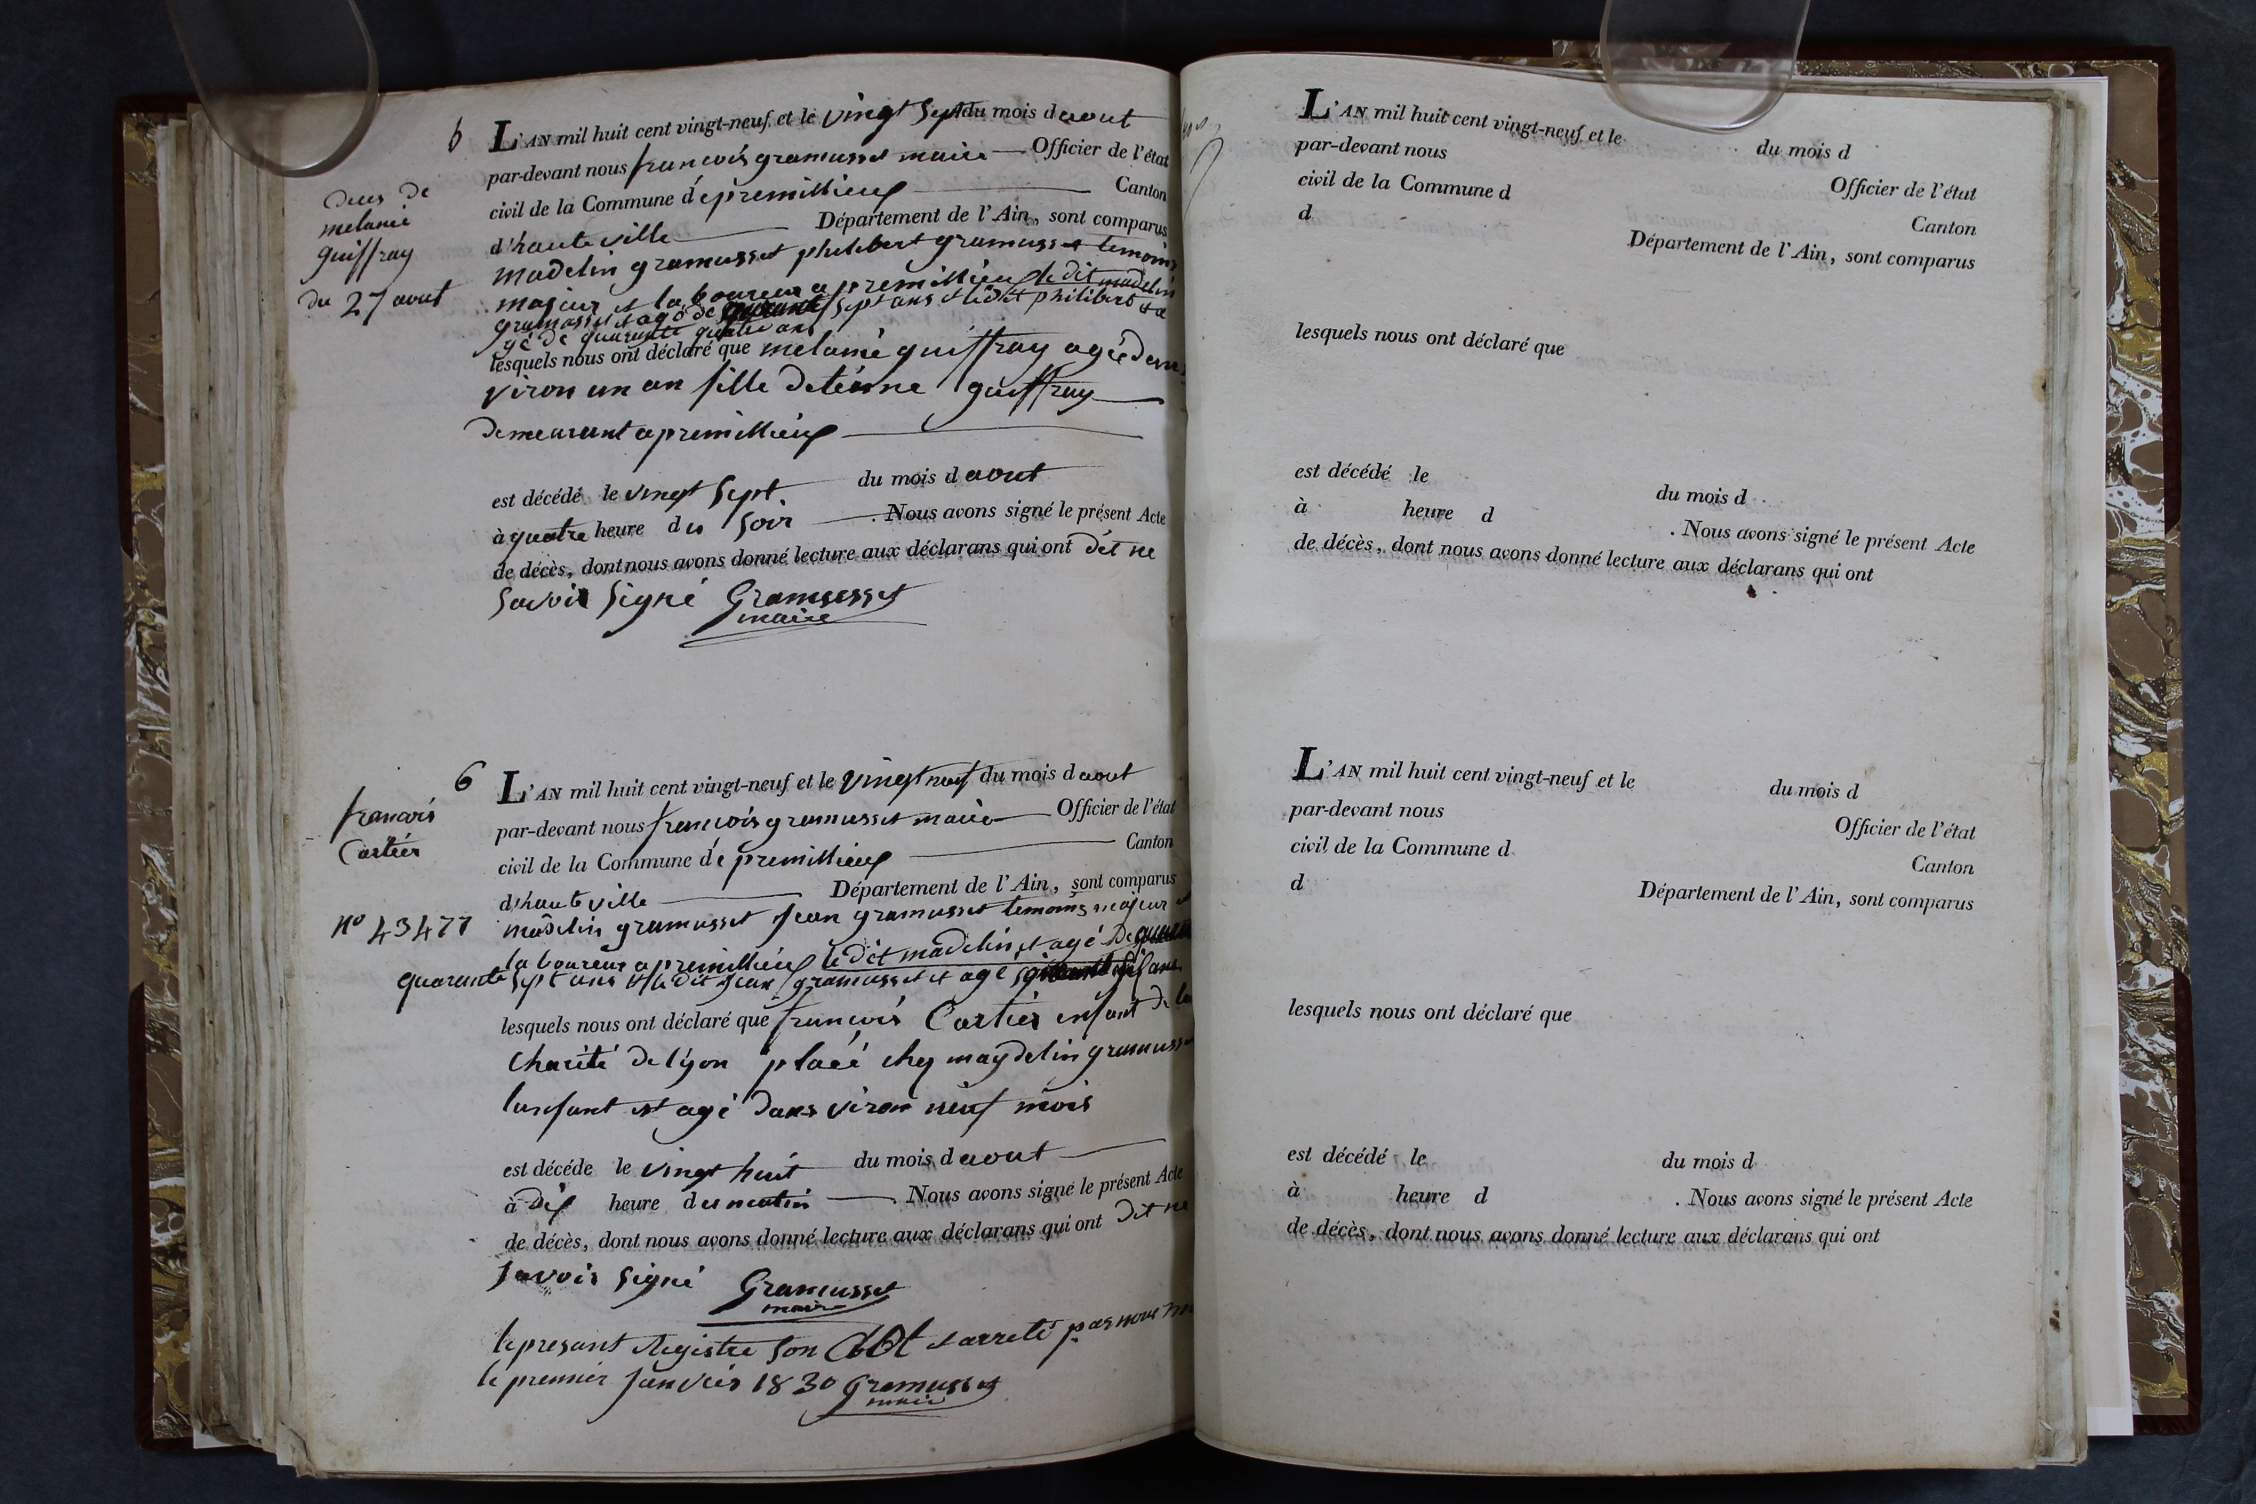 6
deces de
melanie
guiffray
du 27 aout
L'AN mil huit cent vingt-neuf et le vingt sept du mois d aout
par-devant nous francois gramusset maire Officier de l'état
civil de la Commune dé premillieux Canton
d'hauteville Département de l'Ain, sont comparus
madelin gramusset philibert gramusset temoins
majeur et laboureur a premillieux le dit madelin
gramusset et agé de sept ans et le dit philibert et a
gé de quarente quatre ans
lesquels nous ont déclaré que melanie guiffray agée den
viron un an fille detienne guiffray
demeurant a premillieux
est décédé le vingt sept du mois d aout
à quatre heure du soir . Nous avons signé le présent Acte
de décès, dont nous avons donné lecture aux déclarans qui ont dit ne
savoir signé Gramusset
maire
6
francois
Cartier
n° 43477
L'AN mil huit cent vingt-neuf et le vingt neuf du mois d aout
par-devant nous francois gramusset maire Officier de l'état
civil de la Commune dé premillieux Canton
d'hauteville Département de l'Ain, sont comparus
madelin gramusset Jean gramusset temoins majeur et
laboureur a premillieux le dit madelin et agé de
quarante sept ans et le dit Jean gramusset et agé ans
lesquels nous ont déclaré que francois Cartier enfant de la
charité de lyon placé chez maydelin gramusset
lanfant et agé dans viron neuf mois
est décéde le vingt huit du mois d aout
à dix heure du matin . Nous avons signé le présent Acte
de décès, dont nous avons donné lecture aux déclarans qui ont dit ne
savoir signé Gramusset
maire
le presant Registre son Clot et arreté par nous
le premier Janvier 1830 Gramusset
maire
L'AN mil huit cent vingt-neuf et le du mois d
par-devant nous Officier de l'état
civil de la Commune d Canton
d Département de l'Ain, sont comparus
lesquels nous ont déclaré que
est décédé le du mois d
à heure d . Nous avons signé le présent Acte
de décès, dont nous avons donné lecture aux déclarans qui ont
L'AN mil huit cent vingt-neuf et le du mois d
par-devant nous Officier de l'état
civil de la Commune d Canton
d Département de l'Ain, sont comparus
lesquels nous ont déclaré que
est décédé le du mois d
à heure d . Nous avons signé le présent Acte
de décès, dont nous avons donné lecture aux déclarans qui ont